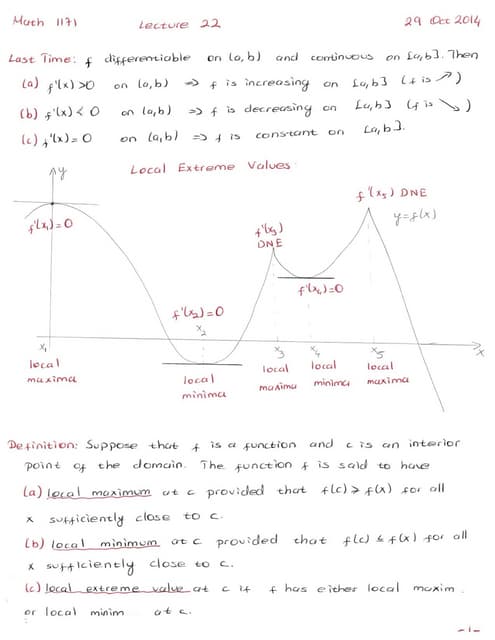 Math 1171 Lecture 22 29 Oct 2014
Last Time: f differentiable on (a,b) and continuous on [a,b]. Then
(a) f'(x) > 0 on (a,b) ⇒ f is increasing on [a,b] (f is ↗)
(b) f'(x) < 0 on (a,b) ⇒ f is decreasing on [a,b] (f is ↘)
(c) f'(x) = 0 on (a,b) ⇒ f is constant on [a,b].
Local Extreme Values:
y
f'(x₅) DNE
y=f(x)
f'(x₁)=0
f'(x₃)
DNE
f'(x₄)=0
f'(x₂)=0
x₂
x₁
x₃ x₄ x₅ x
local
maxima
local
minima
local
maxima
local
minima
local
maxima
Definition: Suppose that f is a function and c is an interior
point of the domain. The function f is said to have
(a) local maximum at c provided that f(c) ≥ f(x) for all
x sufficiently close to c.
(b) local minimum at c provided that f(c) ≤ f(x) for all
x sufficiently close to c.
(c) local extreme value at c if f has either local maxim
or local minim at c.
-1-